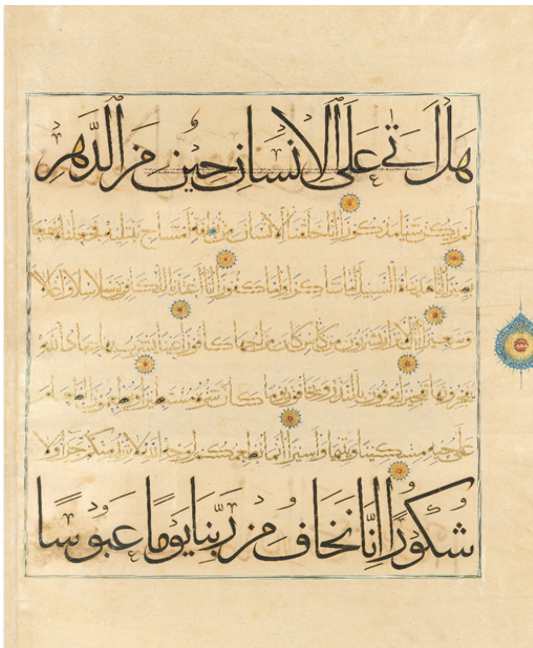 هَل اَتٰى عَلَى الاِنسان حين مِنَ الدَّهرِ
لم يكن شيئا مذكورا انا خلقنا الانسان من نطفة امشاج نبتليه فجعلناه سميعا
بصيرا انا هديناه السبيل اما شاكرا واما كفورا انا اعتدنا للكافرين سلاسلا واغلالا
وسعيرا ان الابرار يشربون من كاس كان مزاجها كافورا عينا يشرب بها عباد الله
يفجرونها تفجيرا يوفون بالنذر ويخافون يوما كان شره مستطيرا ويطعمون الطعام
على حبه مسكينا ويتيما واسيرا انما نطعمكم لوجه الله لا نريد منكم جزاء ولا
شُكُورًا اِنَّا نَخَافُ مِن رَبِّنا يَومًا عَبُوسًا